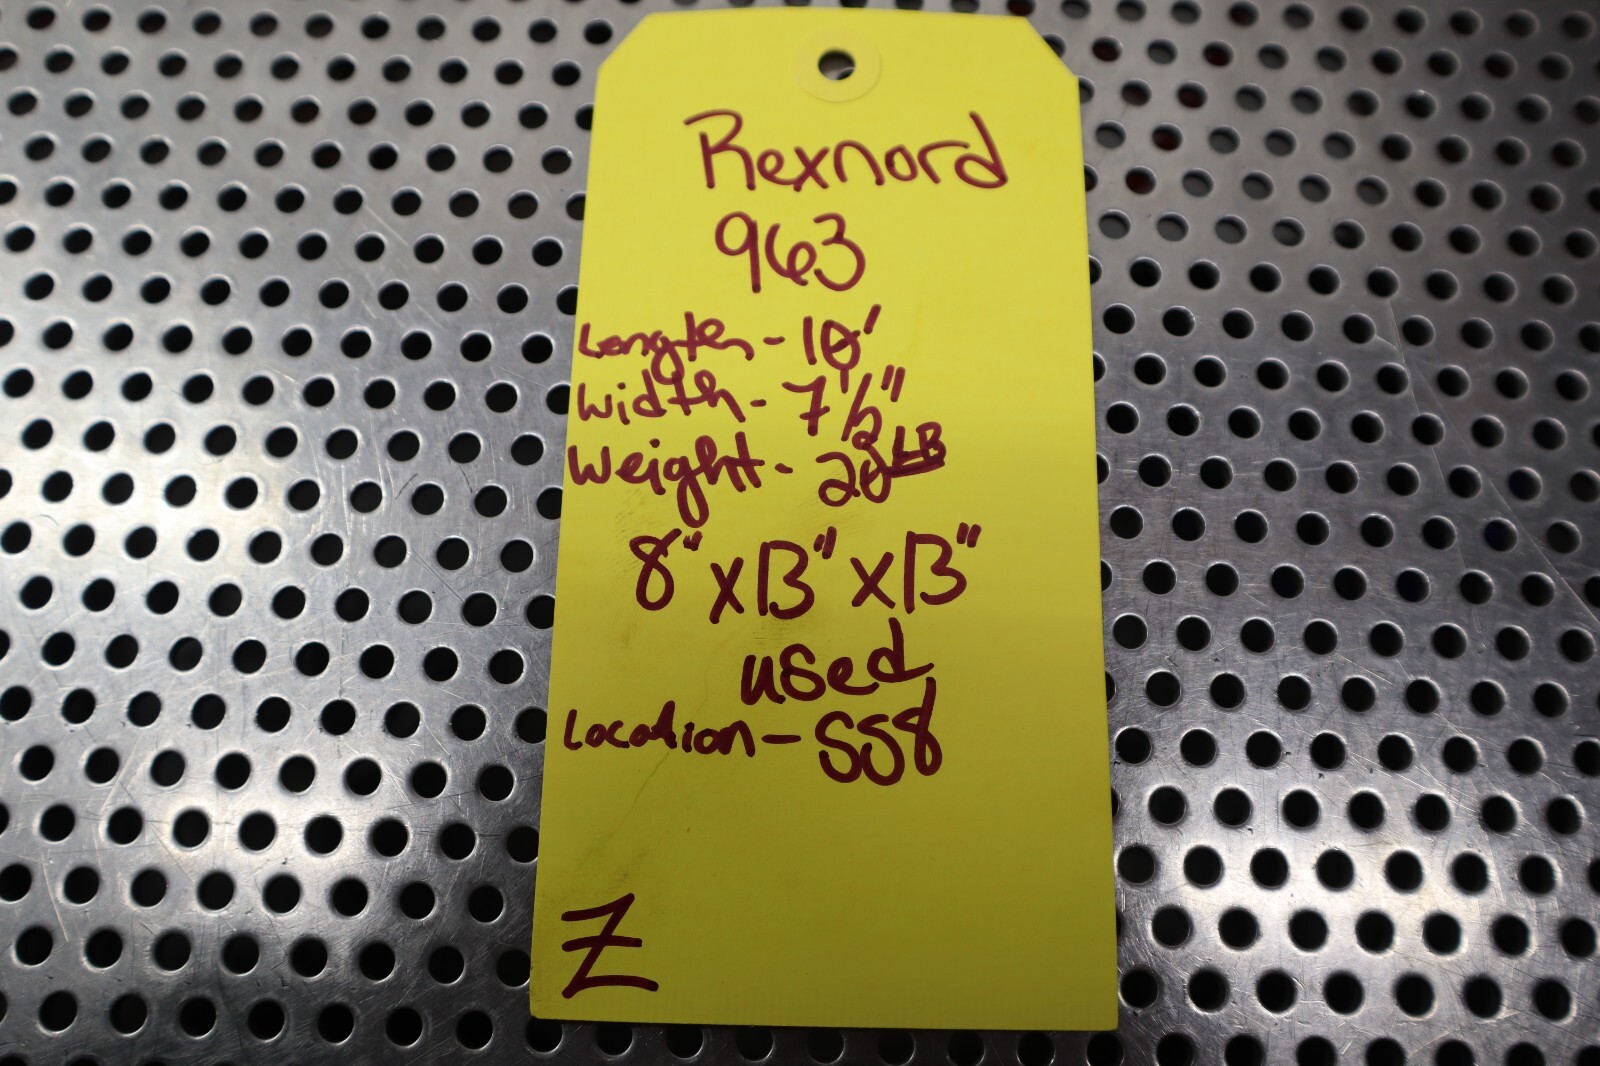 Rexnord
963
Length - 10'
Width - 7 1/2"
Weight - 20 LB
8" x 13" x 13"
used
Location - SS8
Z